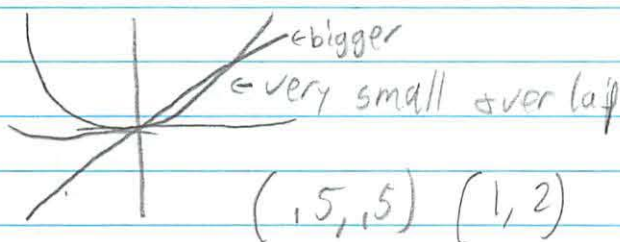 ←bigger
←very small overlap
(,5,,5) (1,2)